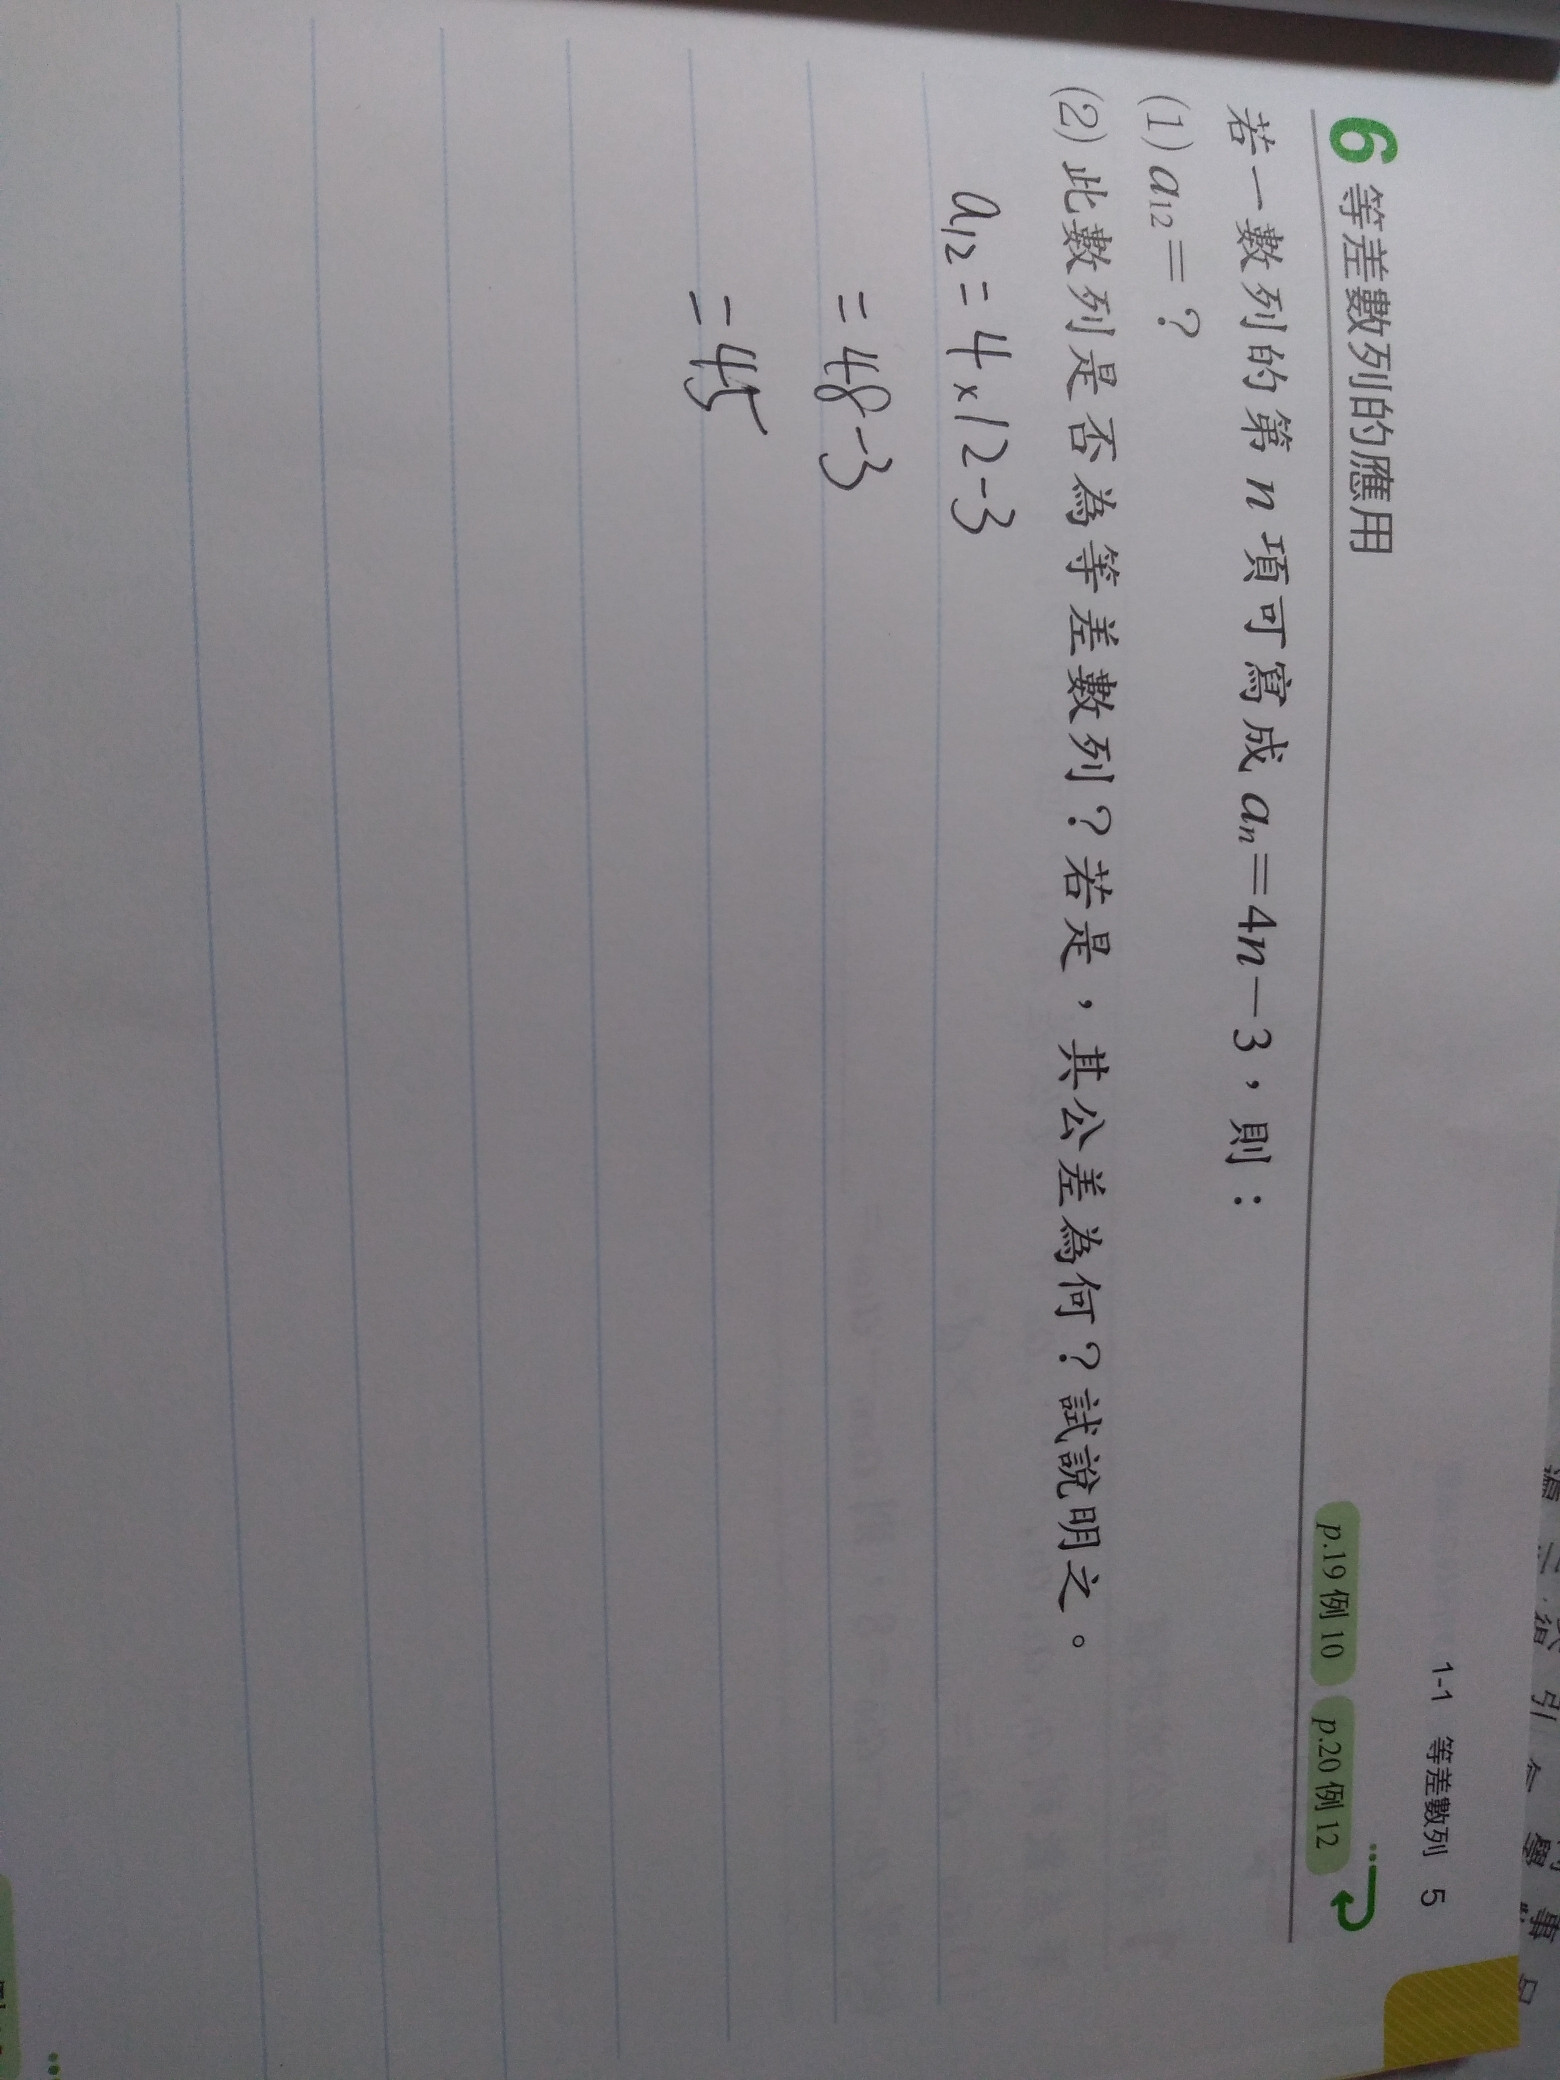 1-1 等差數列 5
6 等差數列的應用 p.19 例 10 p.20 例 12
若一數列的第 n 項可寫成 aₙ=4n-3，則：
(1) a₁₂=？
(2) 此數列是否為等差數列？若是，其公差為何？試說明之。
a₁₂ = 4×12-3
= 48-3
= 45